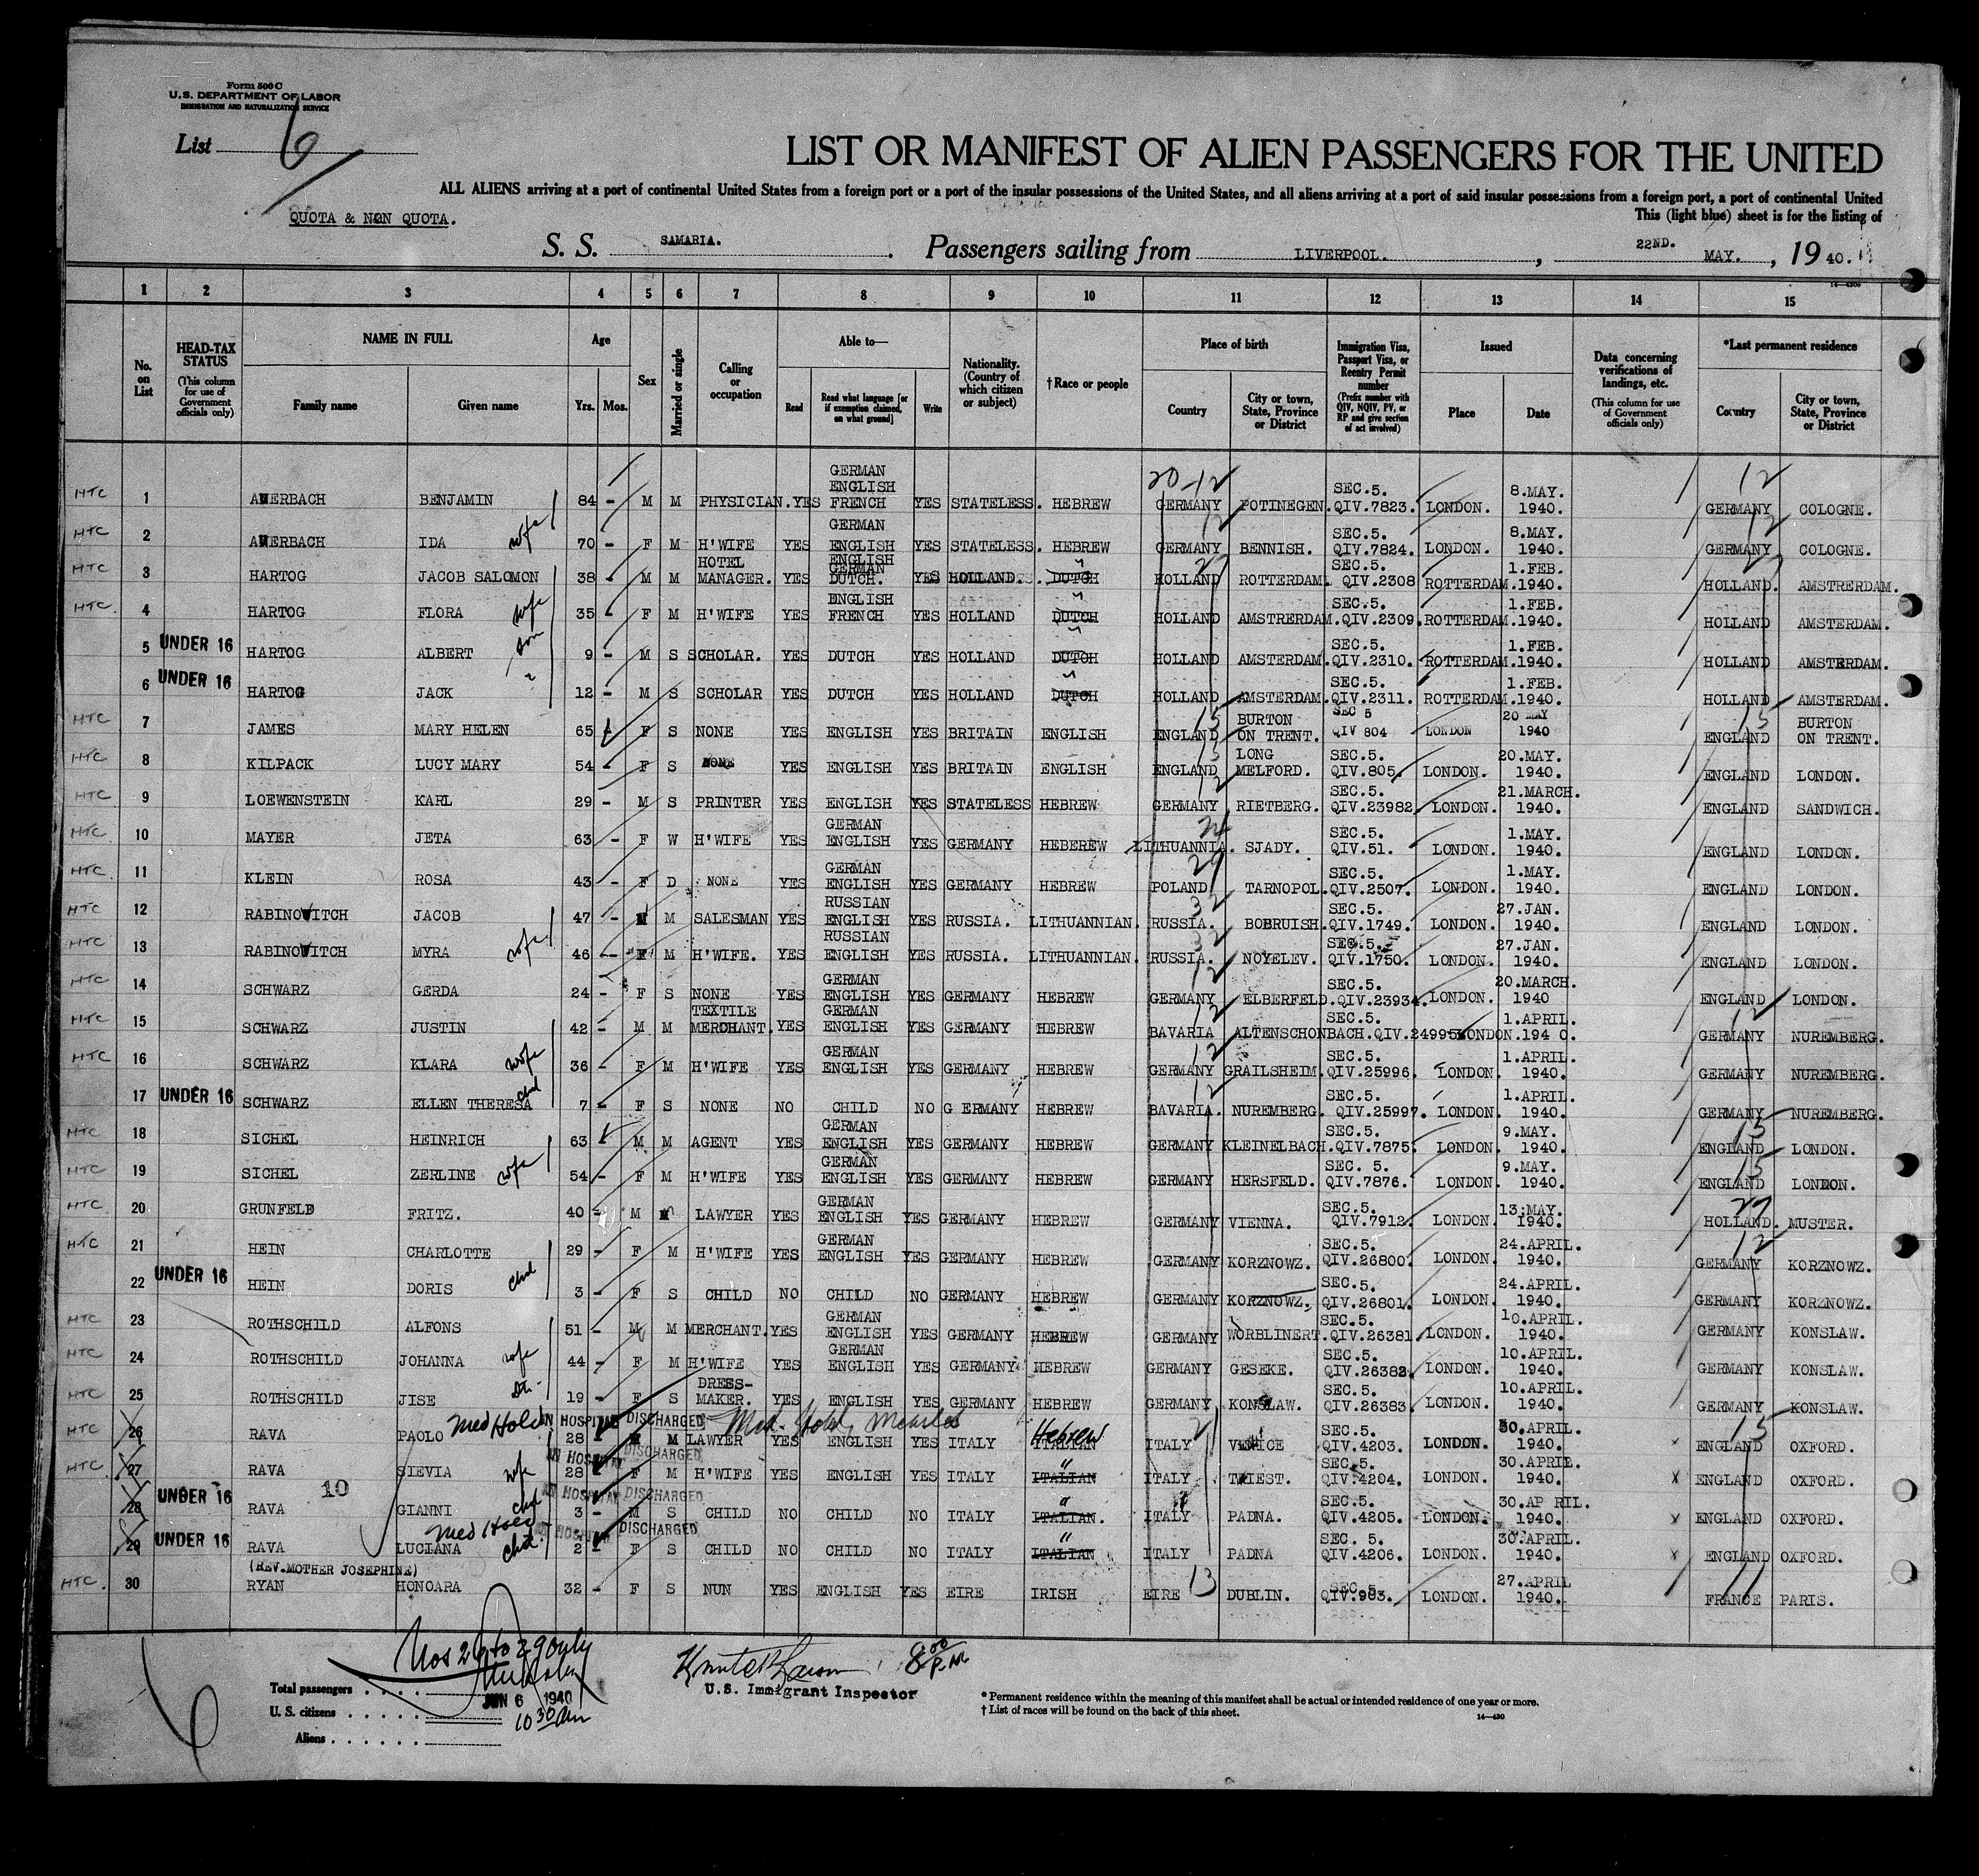 Form 500 C
U.S. DEPARTMENT OF LABOR
IMMIGRATION AND NATURALIZATION SERVICE
List 6
LIST OR MANIFEST OF ALIEN PASSENGERS FOR THE UNITED
ALL ALIENS arriving at a port of continental United States from a foreign port or a port of the insular possessions of the United States, and all aliens arriving at a port of said insular possessions from a foreign port, a port of continental United
This (light blue) sheet is for the listing of
QUOTA & NON QUOTA.
S. S. SAMARIA. Passengers sailing from LIVERPOOL. , 22ND. MAY. , 19 40.
1 2 3 4 5 6 7 8 9 10 11 12 13 14 15
No. on List
HEAD-TAX STATUS (This column for use of Government officials only)
NAME IN FULL Family name Given name
Age Yrs. Mos.
Sex
Married or single
Calling or occupation
Able to— Read Read what language [or if exemption claimed, on what ground] Write
Nationality. (Country of which citizen or subject)
† Race or people
Place of birth Country City or town, State, Province or District
Immigration Visa, Passport Visa, or Reentry Permit number (Prefix number with QIV, NQIV, PV, or RP and give section of act involved)
Issued Place Date
Data concerning verifications of landings, etc. (This column for use of Government officials only)
*Last permanent residence Country City or town, State, Province or District
HTC 1 AUERBACH BENJAMIN 84 - M M PHYSICIAN. YES GERMAN ENGLISH FRENCH YES STATELESS. HEBREW GERMANY POTINEGEN. SEC.5. QIV.7823. LONDON. 8.MAY. 1940. GERMANY COLOGNE.
HTC 2 AUERBACH IDA wfe 70 - F M H'WIFE YES GERMAN ENGLISH YES STATELESS. HEBREW GERMANY BENNISH. SEC.5. QIV.7824. LONDON. 8.MAY. 1940. GERMANY COLOGNE.
HTC 3 HARTOG JACOB SALOMON 38 - M M HOTEL MANAGER. YES ENGLISH GERMAN DUTCH. YES HOLLAND. DUTCH HOLLAND ROTTERDAM. SEC.5. QIV.2308 ROTTERDAM. 1.FEB. 1940. HOLLAND. AMSTRERDAM.
HTC. 4 HARTOG FLORA wfe 35 - F M H'WIFE YES ENGLISH FRENCH YES HOLLAND DUTCH HOLLAND AMSTRERDAM. SEC.5. QIV.2309. ROTTERDAM. 1.FEB. 1940. HOLLAND AMSTERDAM.
5 UNDER 16 HARTOG ALBERT son 9 - M S SCHOLAR. YES DUTCH YES HOLLAND DUTCH HOLLAND AMSTERDAM. SEC.5. QIV.2310. ROTTERDAM. 1.FEB. 1940. HOLLAND AMSTERDAM.
6 UNDER 16 HARTOG JACK " 12 - M S SCHOLAR YES DUTCH YES HOLLAND DUTCH HOLLAND AMSTERDAM. SEC.5. QIV.2311. ROTTERDAM. 1.FEB. 1940. HOLLAND AMSTERDAM.
HTC 7 JAMES MARY HELEN 65 F S NONE YES ENGLISH YES BRITAIN ENGLISH ENGLAND BURTON ON TRENT. SEC 5 QIV 804 LONDON 20 MAY 1940 ENGLAND BURTON ON TRENT.
HTC 8 KILPACK LUCY MARY 54 - F S NONE YES ENGLISH YES BRITAIN ENGLISH ENGLAND LONG MELFORD. SEC.5. QIV.805. LONDON. 20.MAY. 1940. ENGLAND LONDON.
HTC 9 LOEWENSTEIN KARL 29 - M S PRINTER YES ENGLISH YES STATELESS HEBREW GERMANY RIETBERG. SEC.5. QIV.23982. LONDON. 21.MARCH. 1940. ENGLAND SANDWICH.
HTC 10 MAYER JETA 63 - F W H'WIFE YES GERMAN ENGLISH YES GERMANY HEBEREW LITHUANNIA. SJADY. SEC.5. QIV.51. LONDON. 1.MAY. 1940. ENGLAND LONDON.
HTC. 11 KLEIN ROSA 43 - F D NONE YES GERMAN ENGLISH YES GERMANY HEBREW POLAND TARNOPOL. SEC.5. QIV.2507. LONDON. 1.MAY. 1940. ENGLAND LONDON.
HTC 12 RABINOVITCH JACOB 47 - M M SALESMAN YES RUSSIAN ENGLISH YES RUSSIA. LITHUANNIAN. RUSSIA. BOBRUISH. SEC.5. QIV.1749. LONDON. 27.JAN. 1940. ENGLAND LONDON.
HTC 13 RABINOVITCH MYRA wfe 46 - F M H'WIFE. YES RUSSIAN ENGLISH YES RUSSIA. LITHUANNIAN. RUSSIA. NOYELEV. SEC.5. QIV.1750. LONDON. 27.JAN. 1940. ENGLAND LONDON.
HTC 14 SCHWARZ GERDA 24 - F S NONE YES GERMAN ENGLISH YES GERMANY HEBREW GERMANY ELBERFELD. SEC.5. QIV.23934. LONDON. 20.MARCH. 1940 ENGLAND LONDON.
HTC 15 SCHWARZ JUSTIN 42 - M M TEXTILE MERCHANT. YES GERMAN ENGLISH YES GERMANY HEBREW BAVARIA ALTENSCHONBACH. SEC.5. QIV.24995 LONDON. 1.APRIL. 194 0. GERMANY NUREMBERG.
HTC 16 SCHWARZ KLARA wfe 36 - F M H'WIFE YES GERMAN ENGLISH YES GERMANY HEBREW GERMANY GRAILSHEIM. SEC.5. QIV.25996. LONDON. 1.APRIL. 1940. GERMANY NUREMBERG.
17 UNDER 16 SCHWARZ ELLEN THERESA chd 7 - F S NONE NO CHILD NO G ERMANY HEBREW BAVARIA. NUREMBERG. SEC.5. QIV.25997. LONDON. 1.APRIL. 1940. GERMANY NUREMBERG.
HTC 18 SICHEL HEINRICH 63 M M AGENT YES GERMAN ENGLISH YES GERMANY HEBREW GERMANY KLEINELBACH. SEC.5. QIV.7875. LONDON. 9.MAY. 1940. ENGLAND LONDON.
HTC 19 SICHEL ZERLINE wfe 54 - F M H'WIFE YES GERMAN ENGLISH YES GERMANY HEBREW GERMANY HERSFELD. SEC. 5. QIV.7876. LONDON. 9.MAY. 1940. ENGLAND LONDON.
HTC 20 GRUNFELD FRITZ. 40 - M LAWYER YES GERMAN ENGLISH YES GERMANY HEBREW GERMANY VIENNA. SEC.5. QIV.7912. LONDON. 13.MAY. 1940. HOLLAND. MUSTER.
HTC 21 HEIN CHARLOTTE 29 - F M H'WIFE YES GERMAN ENGLISH YES GERMANY HEBREW GERMANY KORZNOWZ. SEC.5. QIV.26800. LONDON. 24.APRIL. 1940. GERMANY KORZNOWZ.
22 UNDER 16 HEIN DORIS chd 3 - F S CHILD NO CHILD NO GERMANY HEBREW GERMANY KORZNOWZ. SEC.5. QIV.26801. LONDON. 24.APRIL. 1940. GERMANY KORZNOWZ.
HTC 23 ROTHSCHILD ALFONS 51 - M M MERCHANT. YES GERMAN ENGLISH YES GERMANY HEBREW GERMANY WORBLINERT. SEC.5. QIV.26381. LONDON. 10.APRIL. 1940. GERMANY KONSLAW.
HTC 24 ROTHSCHILD JOHANNA wfe 44 - F M H'WIFE YES GERMAN ENGLISH YES GERMANY HEBREW GERMANY GESEKE. SEC.5. QIV.26382. LONDON. 10.APRIL. 1940. GERMANY KONSLAW.
HTC 25 ROTHSCHILD JISE 19 - F S DREES-MAKER. YES ENGLISH YES GERMANY HEBREW GERMANY KONSLAW. SEC.5. QIV.26383. LONDON. 10.APRIL. 1940. GERMANY KONSLAW.
HTC 26 RAVA PAOLO Med Hold IN HOSPITAL DISCHARGED Med. Hold, Measles 28 - M M LAWYER YES ENGLISH YES ITALY ITALIAN Hebrew ITALY VENICE SEC.5. QIV.4203. LONDON. 30.APRIL. 1940. x ENGLAND OXFORD.
HTC 27 RAVA SIEVIA wfe IN HOSPITAL DISCHARGED 28 F M H'WIFE YES ENGLISH YES ITALY ITALIAN " ITALY TRIEST. SEC.5. QIV.4204. LONDON. 30.APRIL. 1940. x ENGLAND OXFORD.
28 UNDER 16 RAVA 10 GIANNI chd IN HOSPITAL DISCHARGED 3 - M S CHILD NO CHILD NO ITALY ITALIAN. " ITALY PADNA. SEC.5. QIV.4205. LONDON. 30.AP RIL. 1940. x ENGLAND OXFORD.
29 UNDER 16 RAVA LUCIANA Med Hold chd. IN HOSPITAL DISCHARGED 2 - F S CHILD NO CHILD NO ITALY ITALIAN " ITALY PADNA SEC. 5. QIV.4206. LONDON. 30.APRIL. 1940. x ENGLAND OXFORD.
HTC. 30 (REV.MOTHER JOSEPHINE) RYAN HONOARA 32 - F S NUN YES ENGLISH YES EIRE IRISH EIRE 13 DUBLIN. SEC.5. QIV.903. LONDON. 27.APRIL 1940. FRANCE PARIS.
Nos 26 to 29 only
8 00 P.M.
U.S. Immigrant Inspector
Total passengers
JUN 6 1940
U. S. citizens
10 30 AM
Aliens
* Permanent residence within the meaning of this manifest shall be actual or intended residence of one year or more.
† List of races will be found on the back of this sheet.
14—430